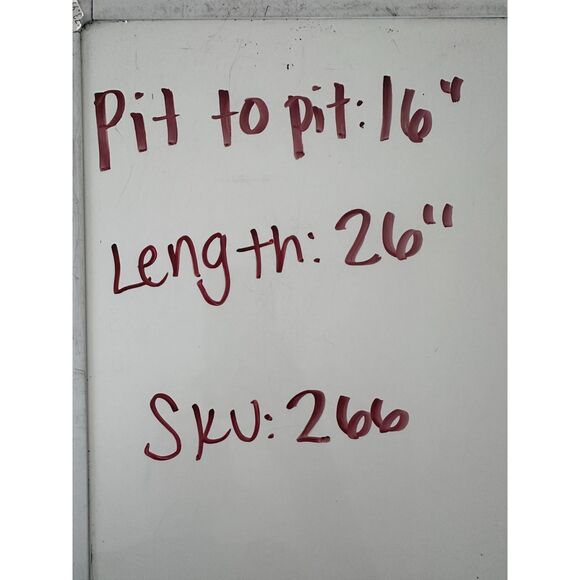 Pit to pit: 16"
Length: 26"
SKU: 266